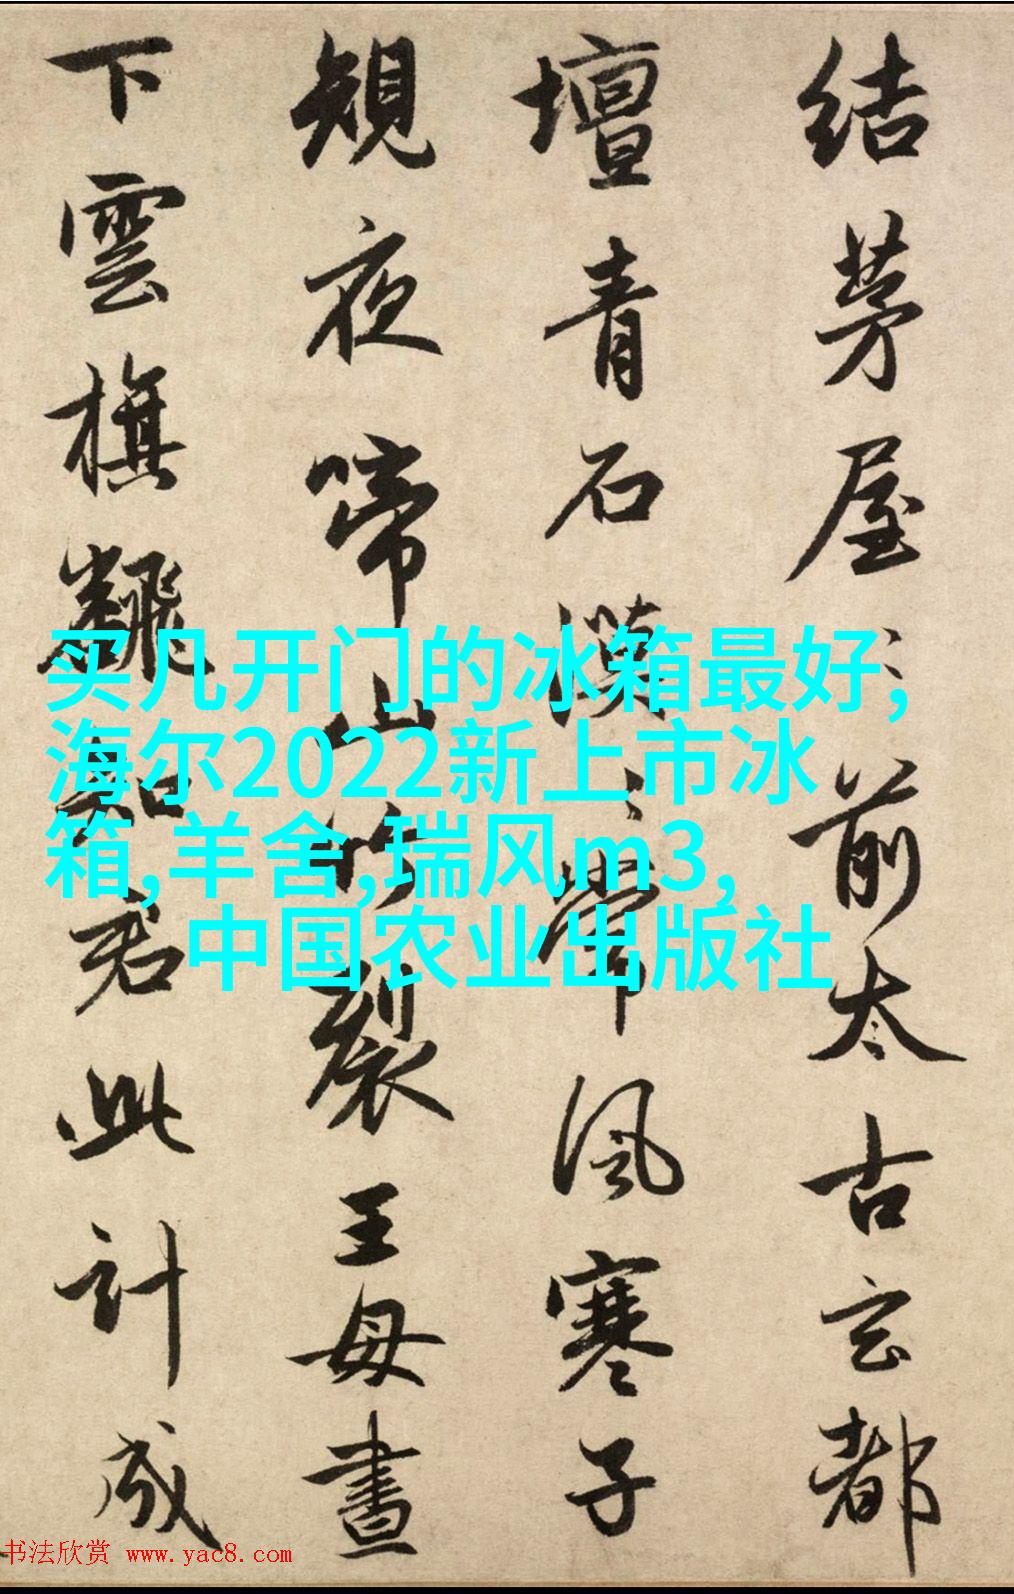 結茅屋前太古玄都
壇青石漠々常風寒子
規夜啼山竹裂王母晝
下雲旗飜知君此計成
买几开门的冰箱最好,
海尔2022新上市冰
箱,羊舍,瑞风m3,
中国农业出版社
书法欣赏 www.yac8.com